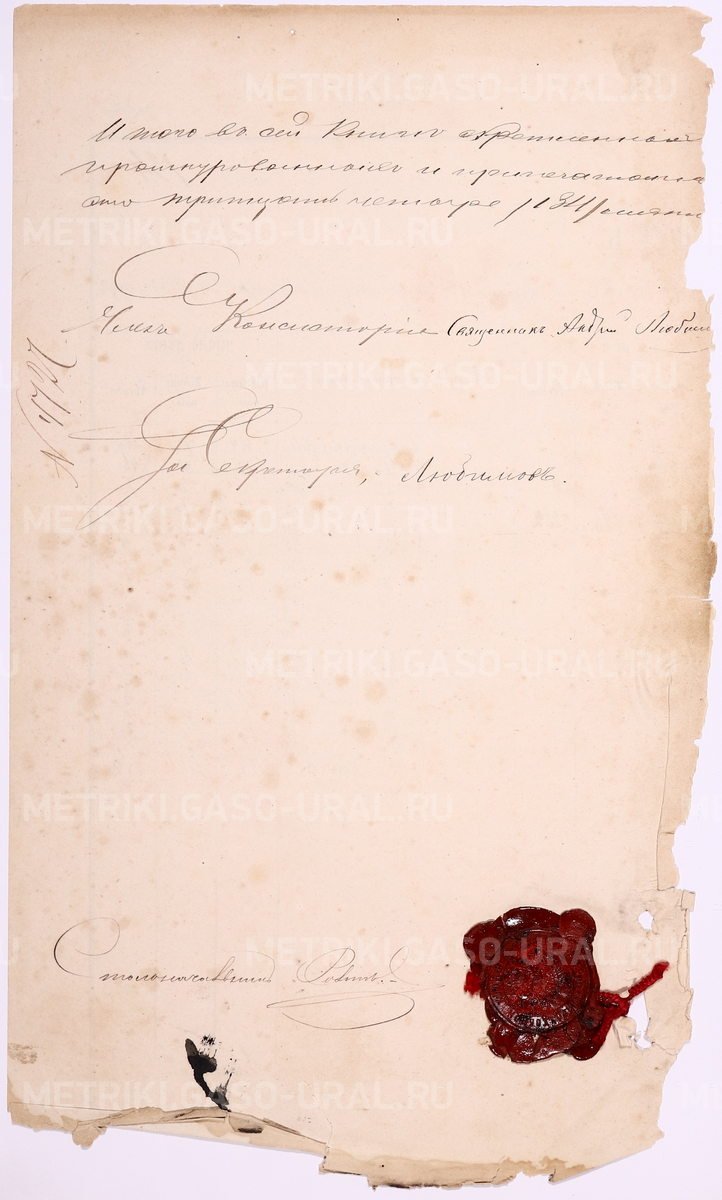 Итого въ сей книгѣ скрепленныхъ
прошнурованныхъ и припечатанн
сто тридцать четыре /134/ листа
Членъ Консисторіи Священникъ Андрей Любим
N 4727
За Секретаря, Любимовъ.
Столоначальникъ
METRIKI.GASO-URAL.RU